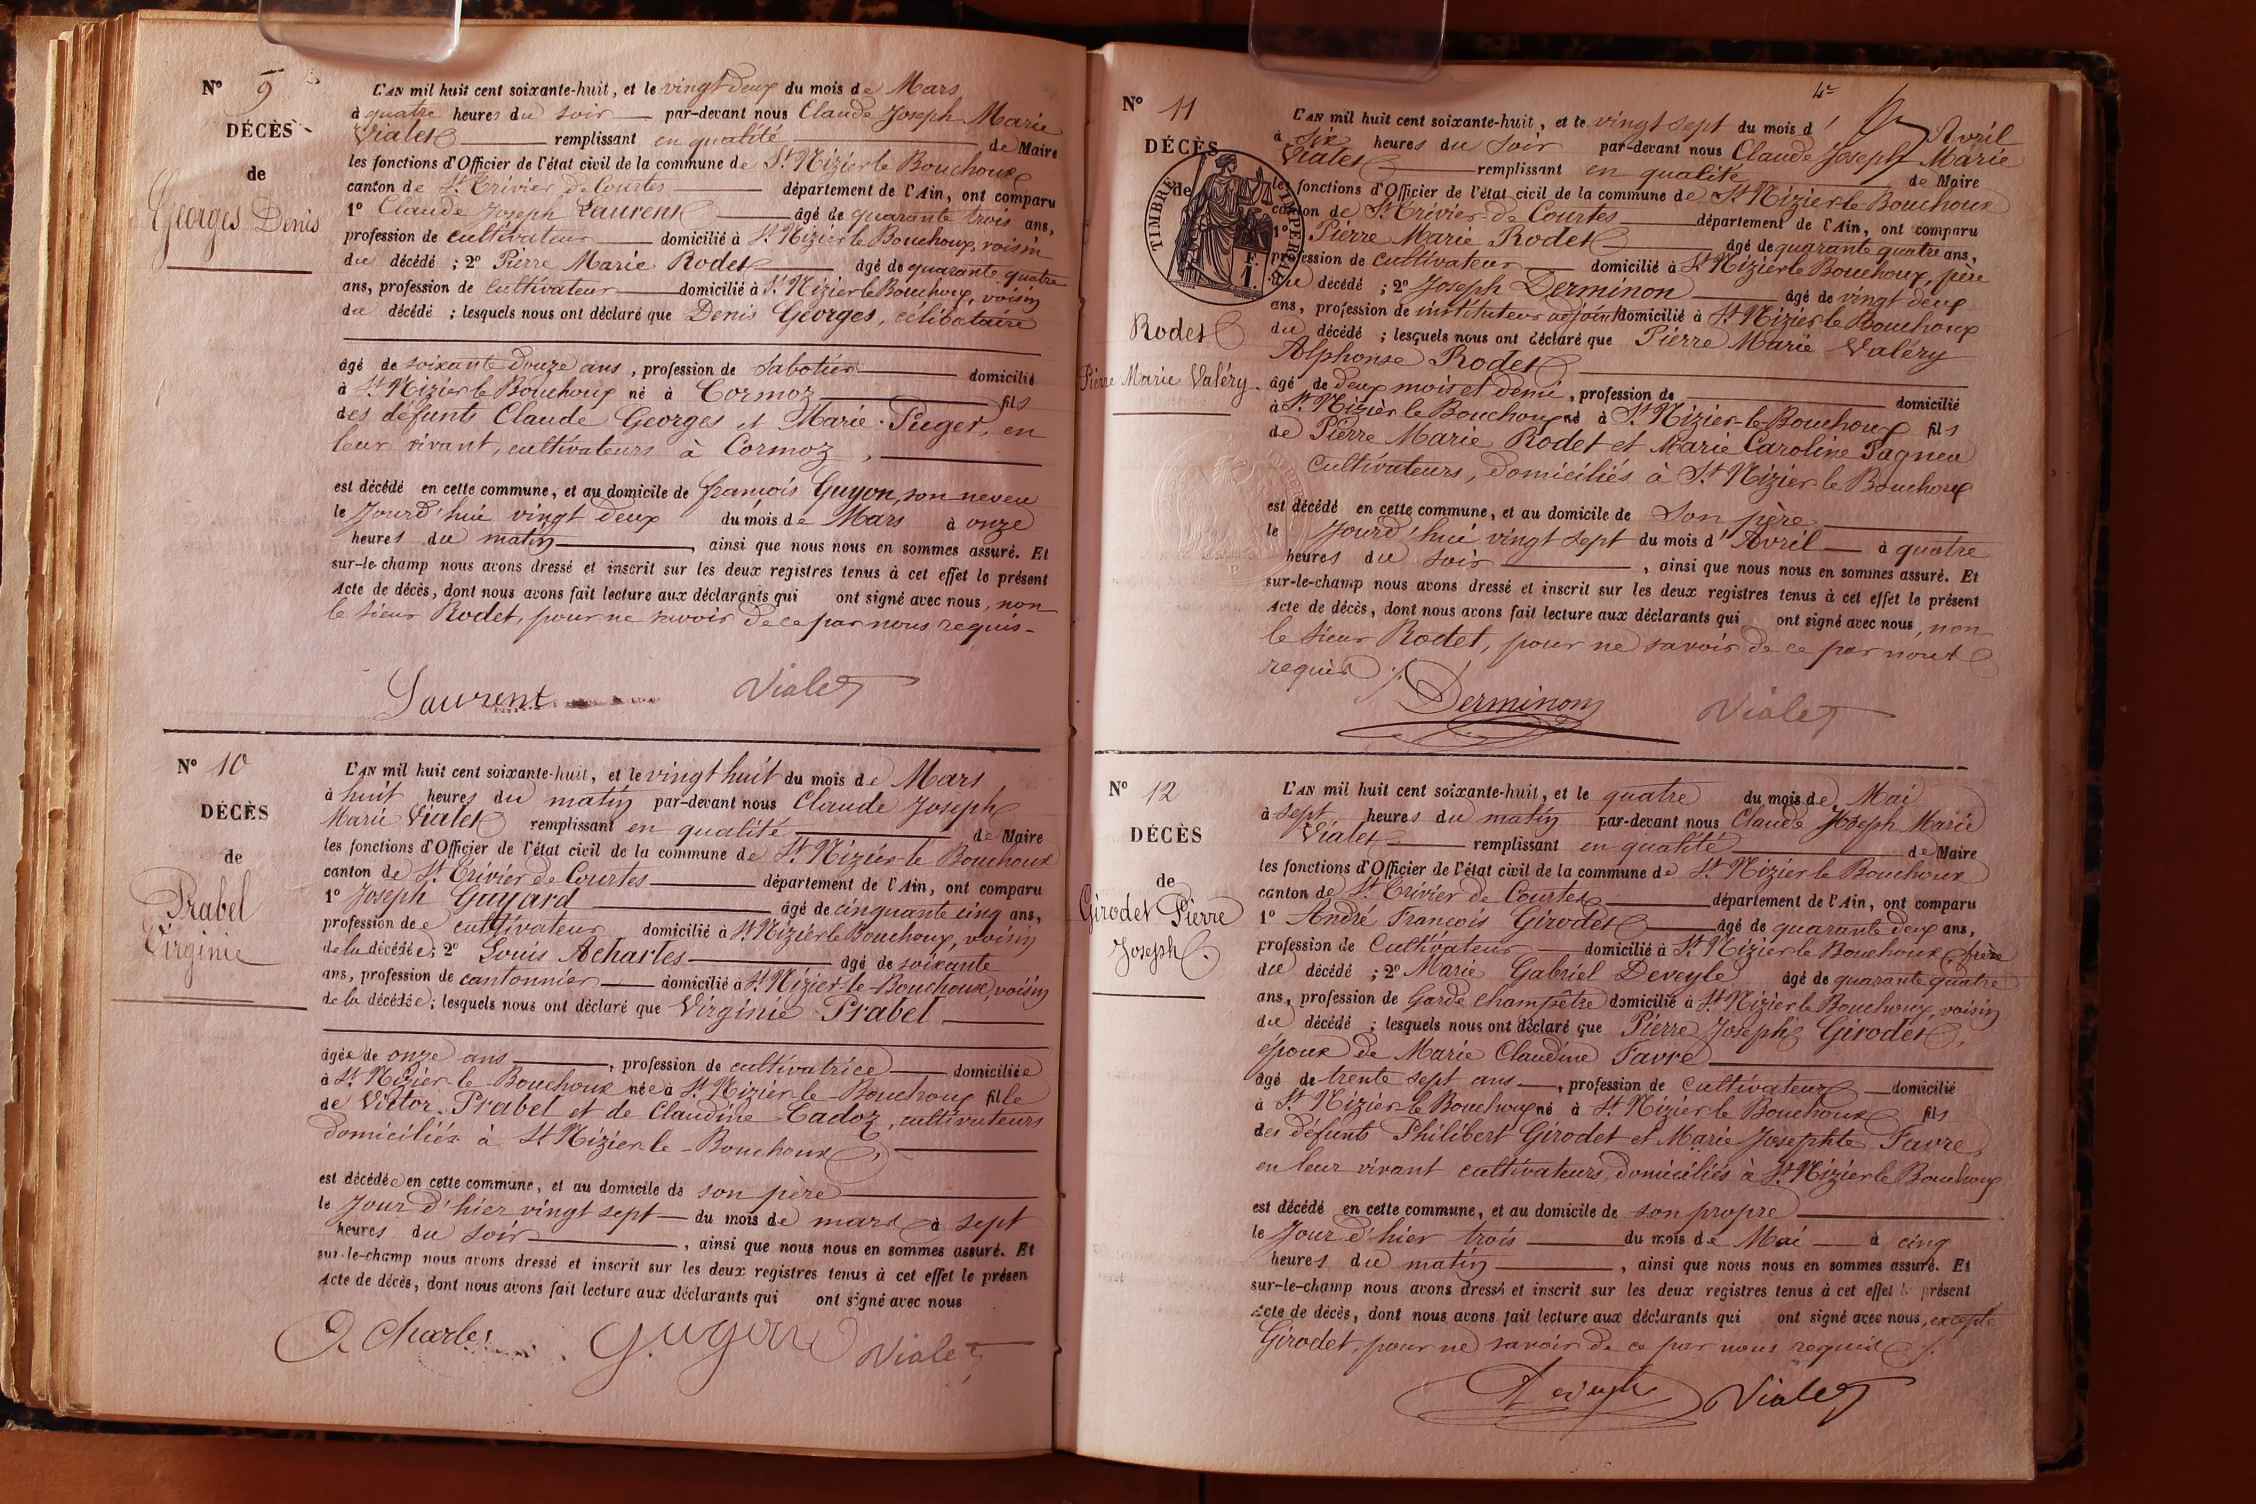 Nº 9
DÉCÈS
de
Georges Denis
L'AN mil huit cent soixante-huit, et le vingt deux du mois de Mars
à quatre heures du soir par-devant nous Claude Joseph Marie
Vialet remplissant en qualité de Maire
les fonctions d'Officier de l'état civil de la commune de St Nizier le Bouchoux
canton de St Trivier de Courtes département de l'Ain, ont comparu
1º Claude Joseph Laurent âgé de quarante trois ans,
profession de cultivateur domicilié à St Nizier le Bouchoux, voisin
du décédé ; 2º Pierre Marie Rodet âgé de quarante quatre
ans, profession de cultivateur domicilié à St Nizier le Bouchoux, voisin
du décédé ; lesquels nous ont déclaré que Denis Georges, célibataire
âgé de soixante douze ans, profession de Sabotier domicilié
à St Nizier le Bouchoux né à Cormoz fils
des défunts Claude Georges et Marie Puget, en
leur vivant, cultivateurs à Cormoz,
est décédé en cette commune, et au domicile de françois Guyon, son neveu
le Jourd'hui vingt deux du mois de Mars à onze
heures du matin, ainsi que nous nous en sommes assuré. Et
sur-le-champ nous avons dressé et inscrit sur les deux registres tenus à cet effet le présent
Acte de décès, dont nous avons fait lecture aux déclarants qui ont signé avec nous, non
le sieur Rodet, pour ne savoir de ce par nous requis-
Laurent Vialet
Nº 10
DÉCÈS
de
Prabel
Virginie
L'AN mil huit cent soixante-huit, et le vingt huit du mois de Mars
à huit heures du matin par-devant nous Claude Joseph
Marie Vialet remplissant en qualité de Maire
les fonctions d'Officier de l'état civil de la commune de St Nizier le Bouchoux
canton de St Trivier de Courtes département de l'Ain, ont comparu
1º Joseph Guyard âgé de cinquante cinq ans,
profession de cultivateur domicilié à St Nizier le Bouchoux, voisin
de la décédée; 2º Louis Acharles âgé de soixante
ans, profession de cantonnier domicilié à St Nizier-le-Bouchoux, voisin
de la décédée; lesquels nous ont déclaré que Virginie Prabel
âgée de onze ans, profession de cultivatrice domiciliée
à St Nizier-le-Bouchoux née à St Nizier-le-Bouchoux fille
de Victor Prabel et de Claudine Cadoz, cultivateurs
domiciliés à St Nizier-le-Bouchoux,
est décédée en cette commune, et au domicile de son père
le Jour d'hier vingt sept du mois de mars à sept
heures du soir, ainsi que nous nous en sommes assuré. Et
sur-le-champ nous avons dressé et inscrit sur les deux registres tenus à cet effet le présen
Acte de décès, dont nous avons fait lecture aux déclarants qui ont signé avec nous
A Charles Vialet
4e
Nº 11
DÉCÈS
de
TIMBRE IMPERIAL
1 F.
Rodet
Pierre Marie Valéry.
L'AN mil huit cent soixante-huit, et le vingt sept du mois d'Avril
à six heures du soir par-devant nous Claude Joseph Marie
Vialet remplissant en qualité de Maire
les fonctions d'Officier de l'état civil de la commune de St Nizier le Bouchoux
canton de St Trivier de Courtes département de l'Ain, ont comparu
1º Pierre Marie Rodet âgé de quarante quatre ans,
profession de cultivateur domicilié à St Nizier le Bouchoux, père
du décédé ; 2º Joseph Derminon âgé de vingt deux
ans, profession de instituteur adjoint domicilié à St Nizier le Bouchoux
du décédé ; lesquels nous ont déclaré que Pierre Marie Valéry
Alphonse Rodet
âgé de deux mois et demi, profession de domicilié
à St Nizier le Bouchoux né à St Nizier-le-Bouchoux fils
de Pierre Marie Rodet et Marie Caroline Pagneu
cultivateurs, domiciliés à St Nizier-le Bouchoux
est décédé en cette commune, et au domicile de son père
le Jourd'hui vingt sept du mois d'Avril à quatre
heures du soir, ainsi que nous nous en sommes assuré. Et
sur-le-champ nous avons dressé et inscrit sur les deux registres tenus à cet effet le présent
Acte de décès, dont nous avons fait lecture aux déclarants qui ont signé avec nous, non
le sieur Rodet, pour ne savoir de ce par nous
requis
Derminon Vialet
Nº 12
DÉCÈS
de
Girodet Pierre
Joseph.
L'AN mil huit cent soixante-huit, et le quatre du mois de Mai
à sept heures du matin par-devant nous Claude Joseph Marie
Vialet remplissant en qualité de Maire
les fonctions d'Officier de l'état civil de la commune de St Nizier le Bouchoux
canton de St Trivier de Courtes département de l'Ain, ont comparu
1º André François Girodet âgé de quarante deux ans,
profession de cultivateur domicilié à St Nizier le Bouchoux, frère
du décédé ; 2º Marie Gabriel Deveyle âgé de quarante quatre
ans, profession de Garde champêtre domicilié à St Nizier le Bouchoux, voisin
du décédé ; lesquels nous ont déclaré que Pierre Joseph Girodet,
époux de Marie Claudine Favre
âgé de trente sept ans, profession de cultivateur domicilié
à St Nizier-le Bouchoux né à St Nizier le Bouchoux fils
des défunts Philibert Girodet et Marie Josephte Favre,
en leur vivant cultivateurs, domiciliés à St Nizier le Bouchoux
est décédé en cette commune, et au domicile de son propre
le Jour d'hier trois du mois de Mai à cinq
heures du matin, ainsi que nous nous en sommes assuré. Et
sur-le-champ nous avons dressé et inscrit sur les deux registres tenus à cet effet le présent
Acte de décès, dont nous avons fait lecture aux déclarants qui ont signé avec nous, excepté
Girodet, pour ne savoir de ce par nous requis
Vialet